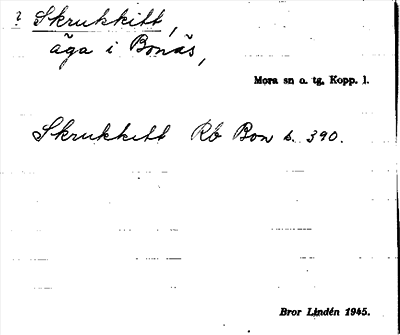 ? Skrukkitt,
äga i Bonäs,
Mora sn o. tg. Kopp. l.
Skrukkitt Rb Bon s. 390.
Bror Lindén 1945.